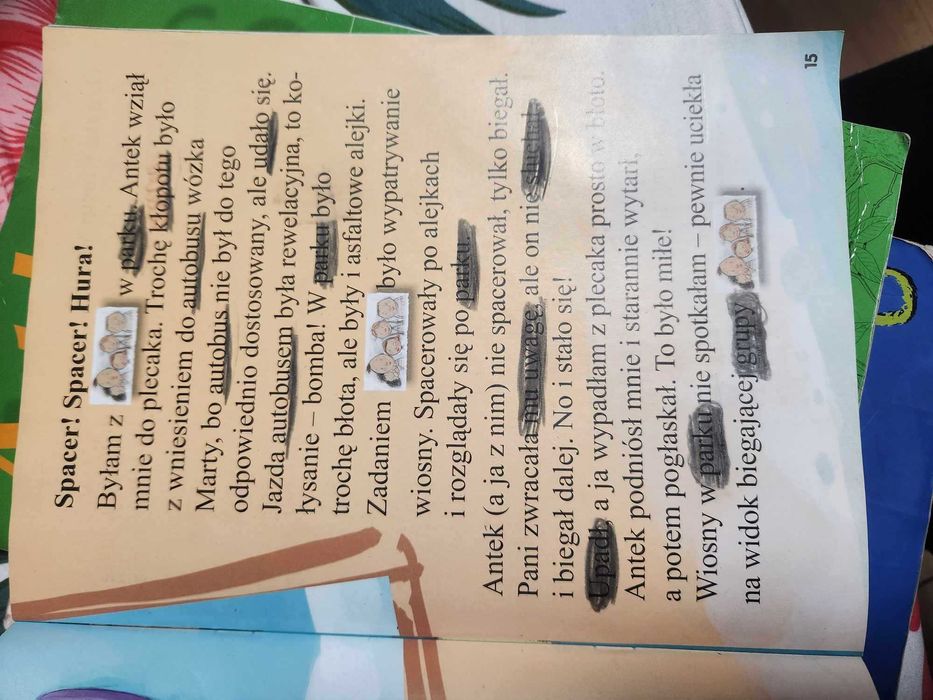 Spacer! Spacer! Hura!
Byłam z w parku. Antek wziął
mnie do plecaka. Trochę kłopotu było
z wniesieniem do autobusu wózka
Marty, bo autobus nie był do tego
odpowiednio dostosowany, ale udało się.
Jazda autobusem była rewelacyjna, to ko-
łysanie – bomba! W parku było
trochę błota, ale były i asfaltowe alejki.
Zadaniem było wypatrywanie
wiosny. Spacerowały po alejkach
i rozglądały się po parku.
Antek (a ja z nim) nie spacerował, tylko biegał.
Pani zwracała mu uwagę, ale on nie słuchał
i biegał dalej. No i stało się!
Upadł, a ja wypadłam z plecaka prosto w błoto.
Antek podniósł mnie i starannie wytarł,
a potem pogłaskał. To było miłe!
Wiosny w parku nie spotkałam – pewnie uciekła
na widok biegającej grupy .
15